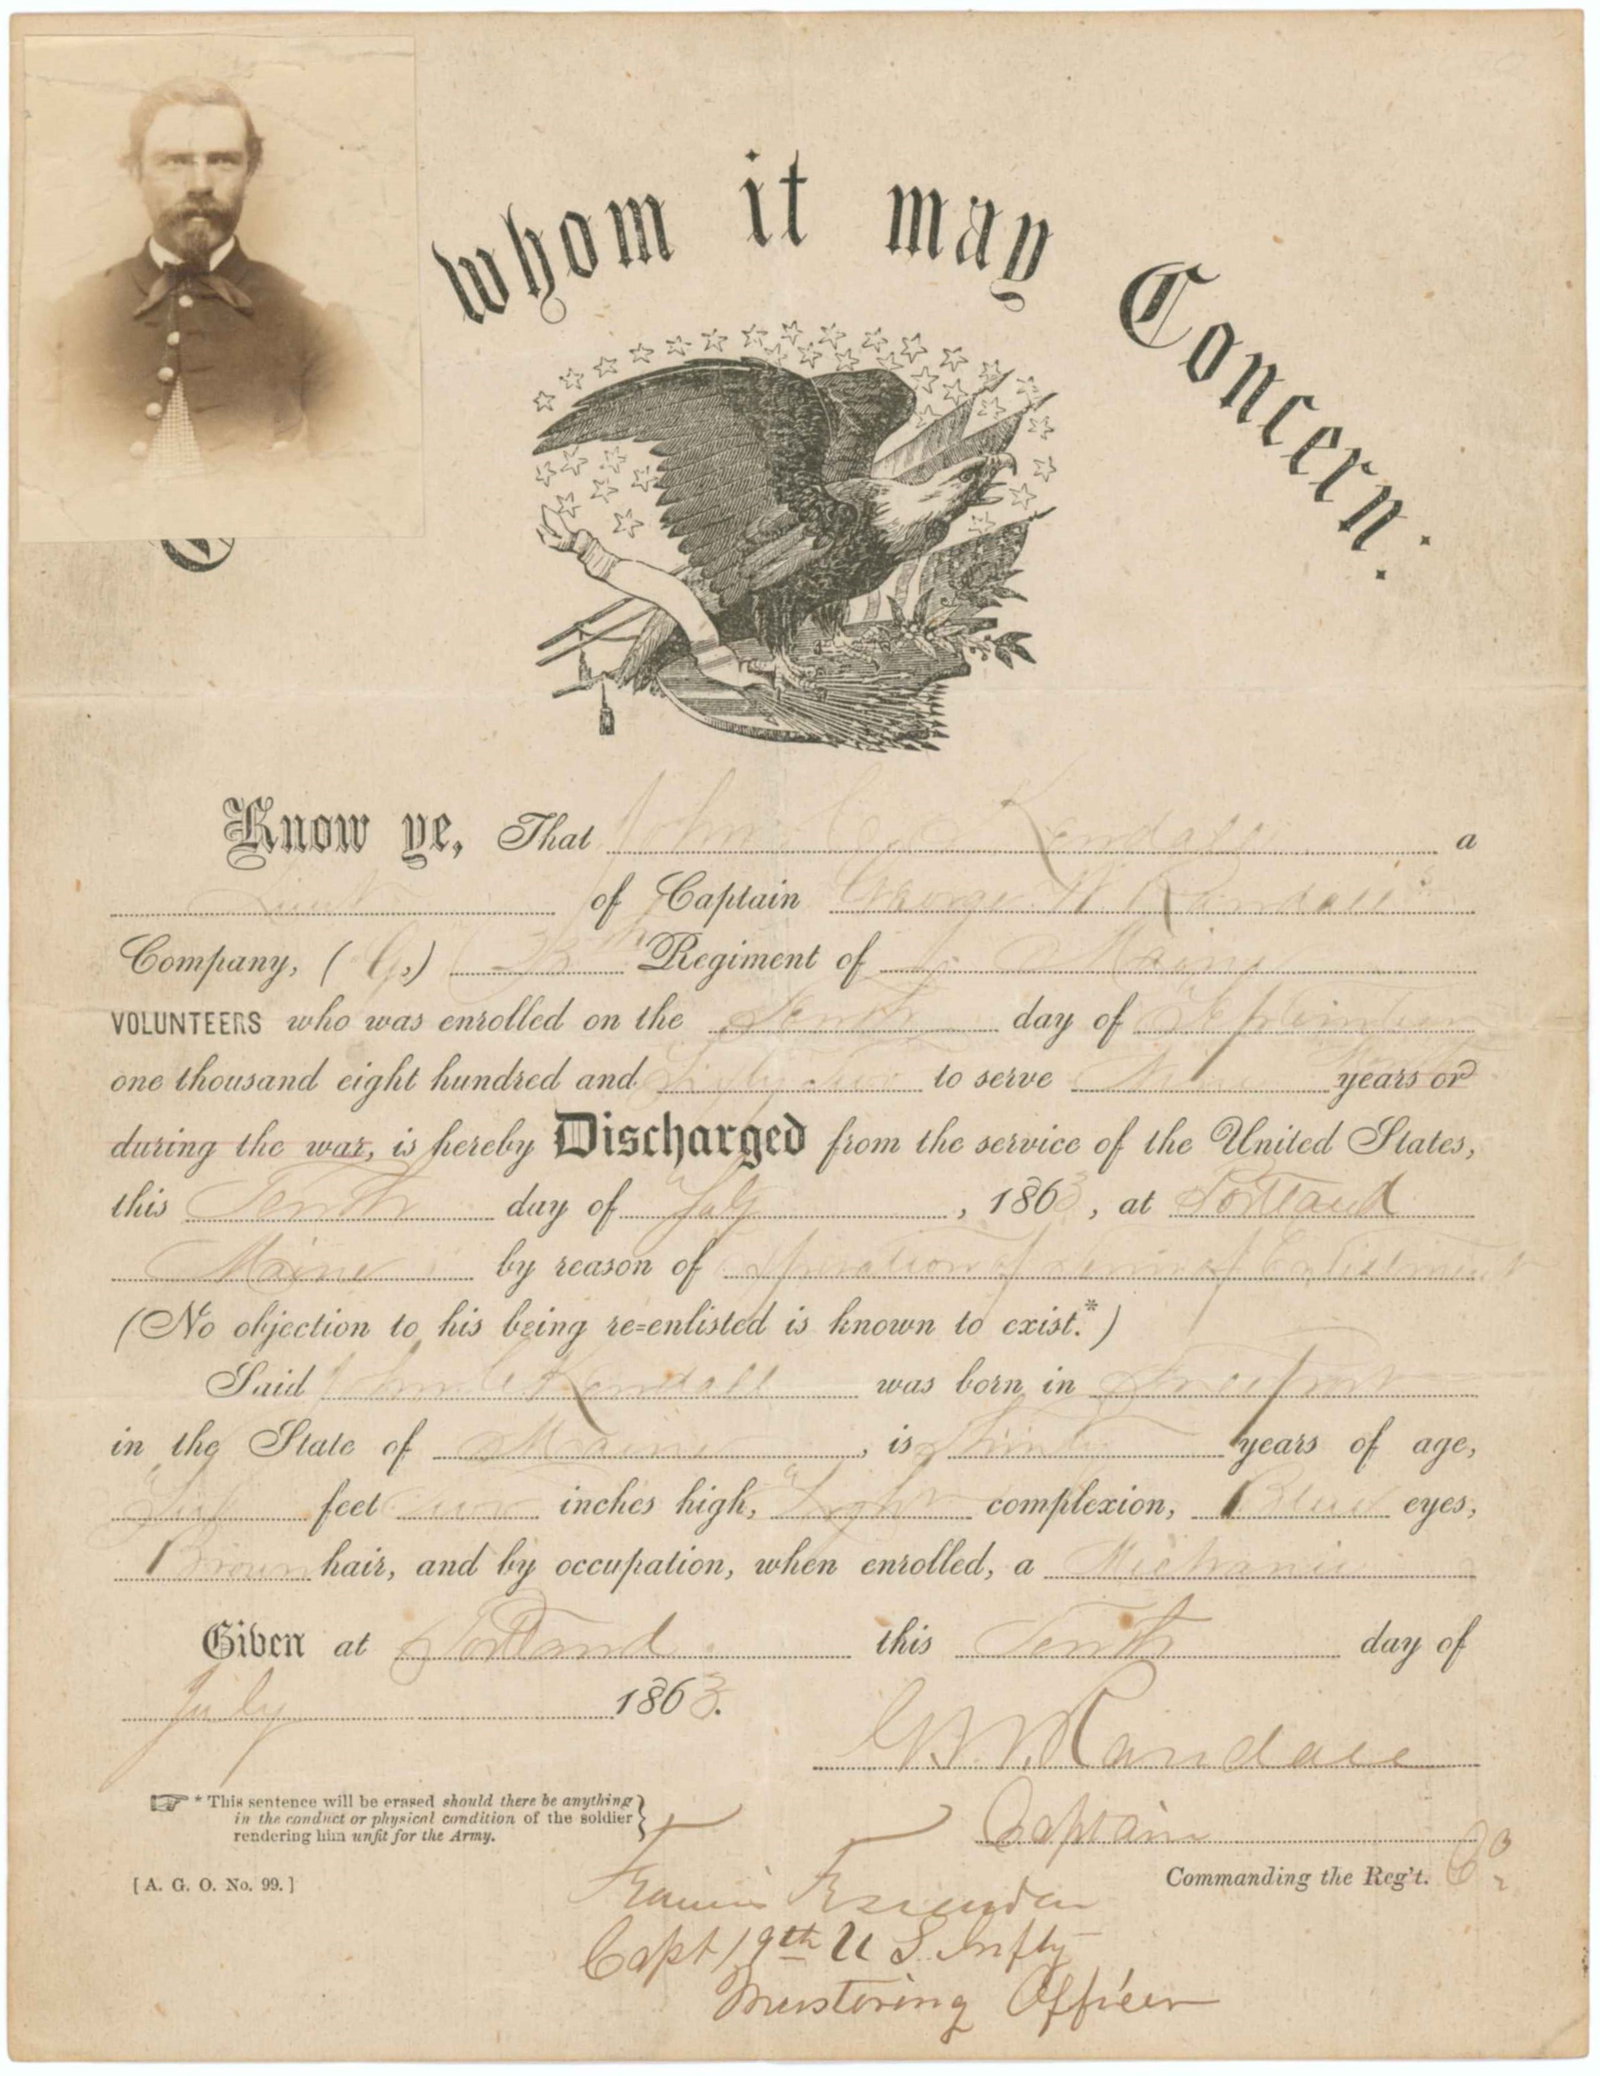 whom it may Concern:
Know ye, That John Kendall a
Lieut of Captain George W Randall's
Company, (G,) Regiment of Maine
VOLUNTEERS who was enrolled on the Tenth day of September
one thousand eight hundred and Sixty Two to serve Nine Months years or
during the war, is hereby Discharged from the service of the United States,
this Tenth day of July, 1863, at Portland
Maine by reason of Expiration of Term of Enlistment
(No objection to his being re=enlisted is known to exist.*)
Said John C Kendall was born in Freeport
in the State of Maine, is years of age,
feet inches high, Light complexion, Blue eyes,
Brown hair, and by occupation, when enrolled, a Mechanic
Given at Portland this Tenth day of
July 1863.
G. W. Randall
* This sentence will be erased should there be anything
in the conduct or physical condition of the soldier
rendering him unfit for the Army.
Captain
[A. G. O. No. 99.]
Commanding the Reg't. Co
Francis Fessenden
Capt 19th U S Infty
Mustering Officer